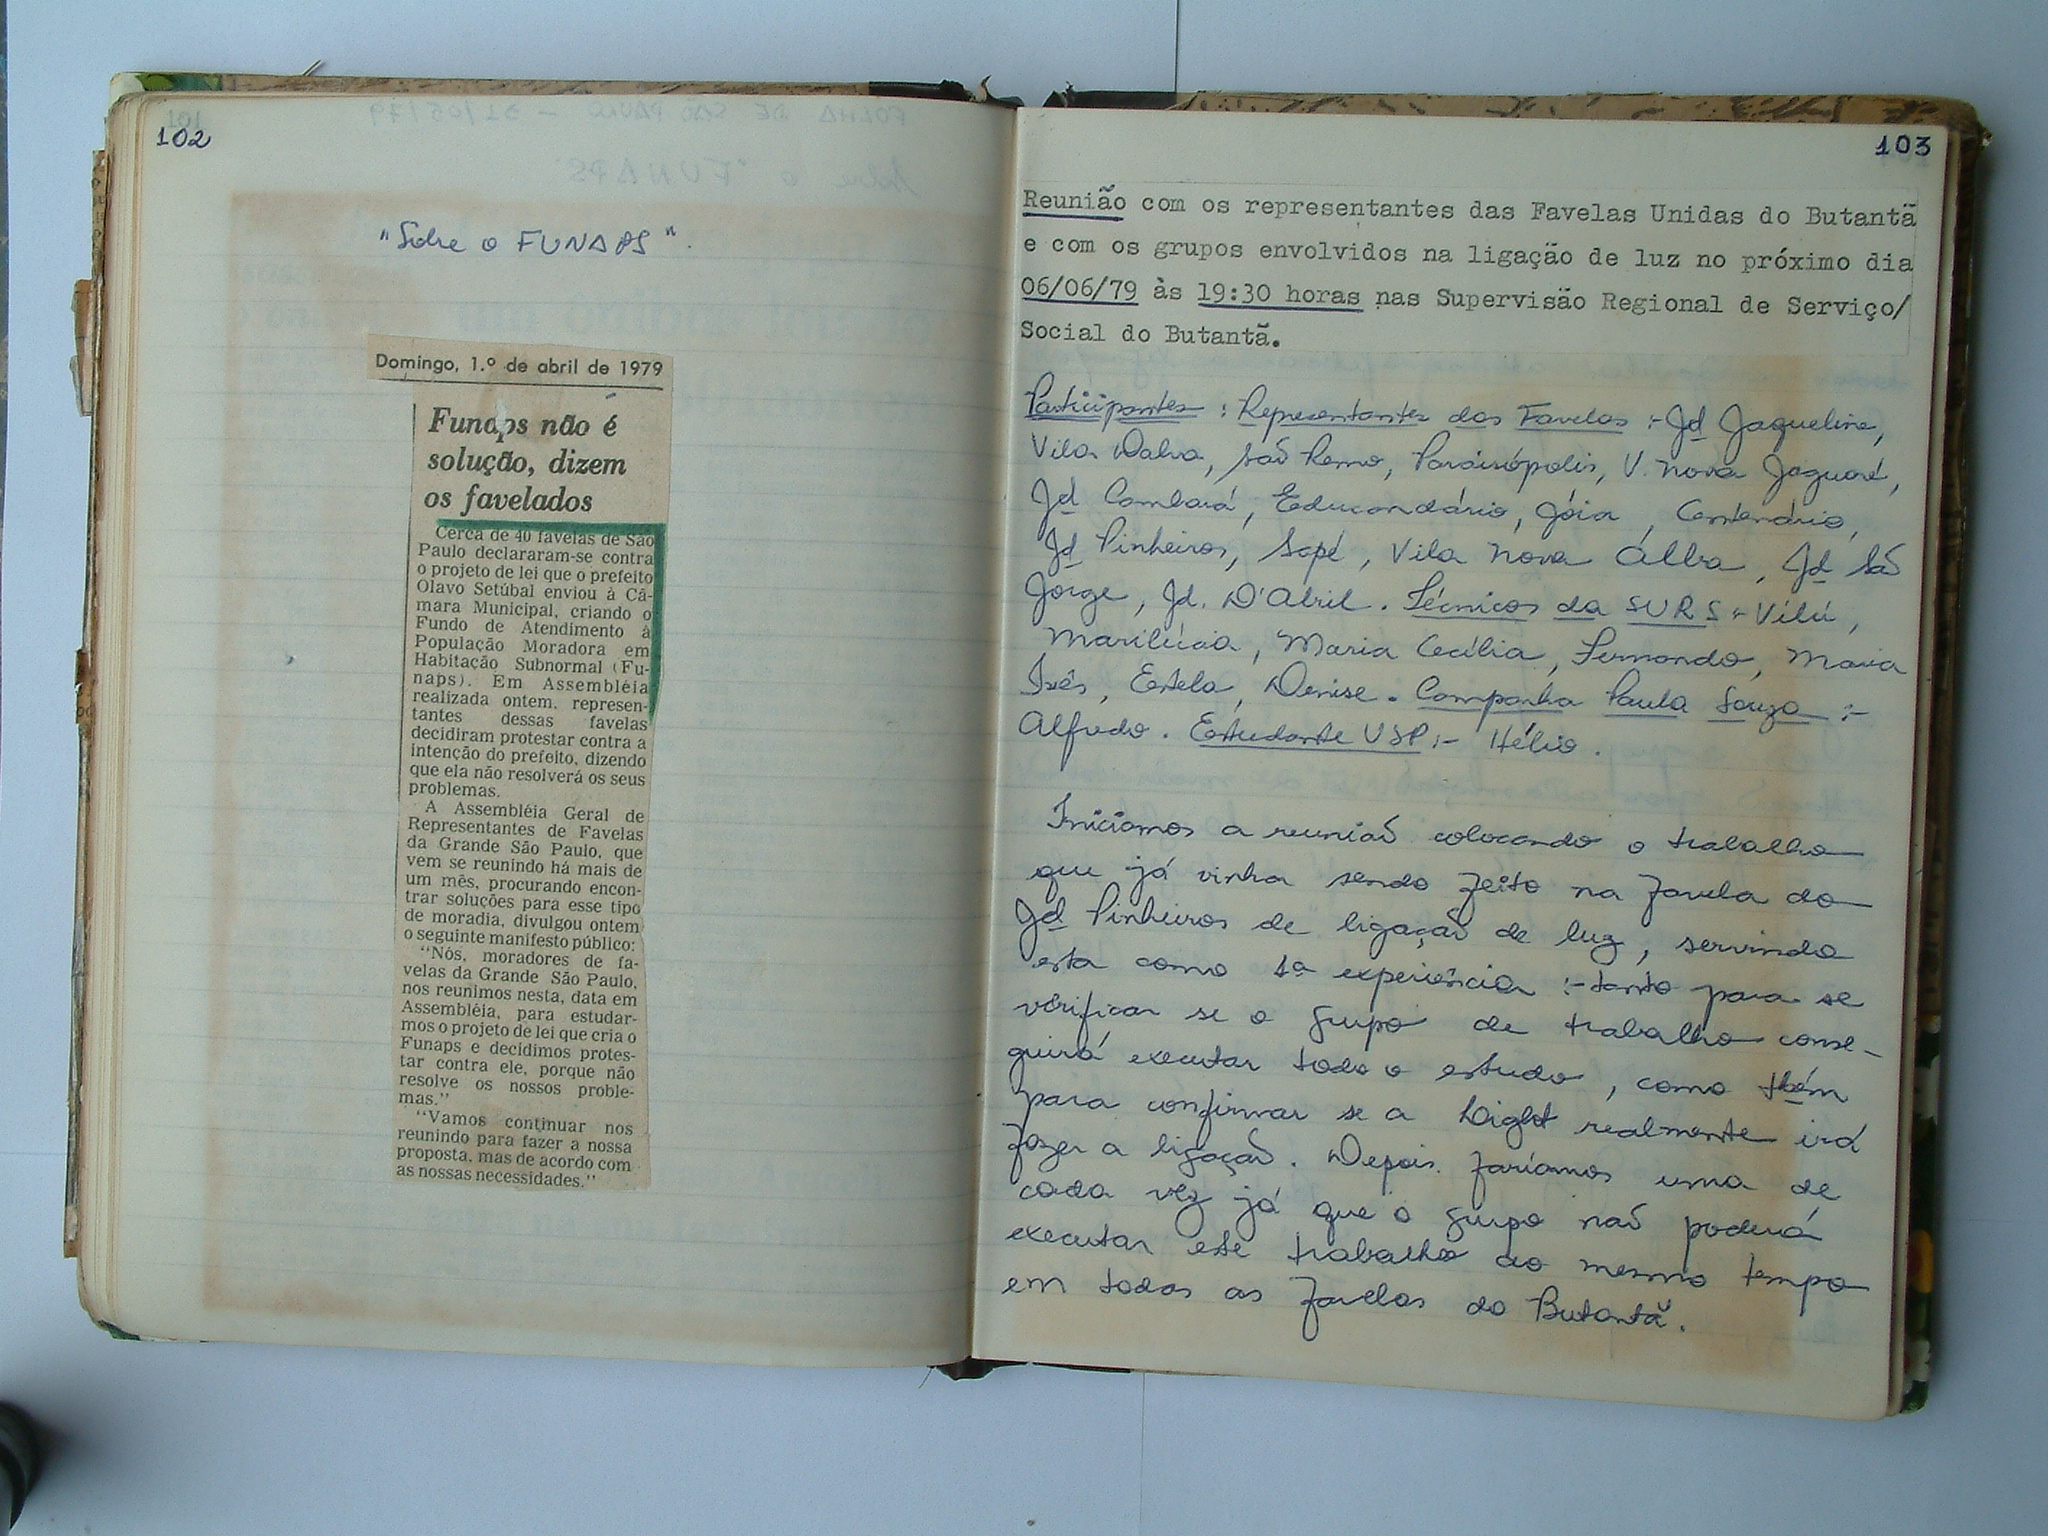 102
"Sobre o FUNAPS".
Domingo, 1.º de abril de 1979
Funaps não é
solução, dizem
os favelados
Cerca de 40 favelas de São
Paulo declararam-se contra
o projeto de lei que o prefeito
Olavo Setúbal enviou à Câ-
mara Municipal, criando o
Fundo de Atendimento à
População Moradora em
Habitação Subnormal (Fu-
naps). Em Assembléia
realizada ontem, represen-
tantes dessas favelas
decidiram protestar contra a
intenção do prefeito, dizendo
que ela não resolverá os seus
problemas.
A Assembléia Geral de
Representantes de Favelas
da Grande São Paulo, que
vem se reunindo há mais de
um mês, procurando encon-
trar soluções para esse tipo
de moradia, divulgou ontem
o seguinte manifesto público:
"Nós, moradores de fa-
velas da Grande São Paulo,
nos reunimos nesta, data em
Assembléia, para estudar-
mos o projeto de lei que cria o
Funaps e decidimos protes-
tar contra ele, porque não
resolve os nossos proble-
mas."
"Vamos continuar nos
reunindo para fazer a nossa
proposta, mas de acordo com
as nossas necessidades."
103
Reunião com os representantes das Favelas Unidas do Butantã
e com os grupos envolvidos na ligação de luz no próximo dia
06/06/79 às 19:30 horas nas Supervisão Regional de Serviço/
Social do Butantã.
Participantes : Representantes das Favelas :- Jd Jaqueline,
Vila Dalva, São Remo, Paraisópolis, V. Nova Jaguaré,
Jd Cambará, Educandário, Jóia, Centenário,
Jd Pinheiros, Sapé, Vila Nova Alba, Jd São
Jorge, Jd. D'Abril. Técnicos da SURS :- Vilú,
Marilúcia, Maria Cecília, Fernando, Maria
Inês, Estela, Denise. Companha Paula Souza :-
Alfredo. Estudante USP :- Hélio.
Iniciamos a reunião colocando o trabalho
que já vinha sendo feito na favela do
Jd Pinheiros de ligação de luz, servindo
esta como 1ª experiência :- tanto para se
verificar se o grupo de trabalho conse-
guirá executar todo o estudo, como tbém
para confirmar se a Light realmente irá
fazer a ligação. Depois faríamos uma de
cada vez já que o grupo não poderá
executar este trabalho ao mesmo tempo
em todas as favelas do Butantã.